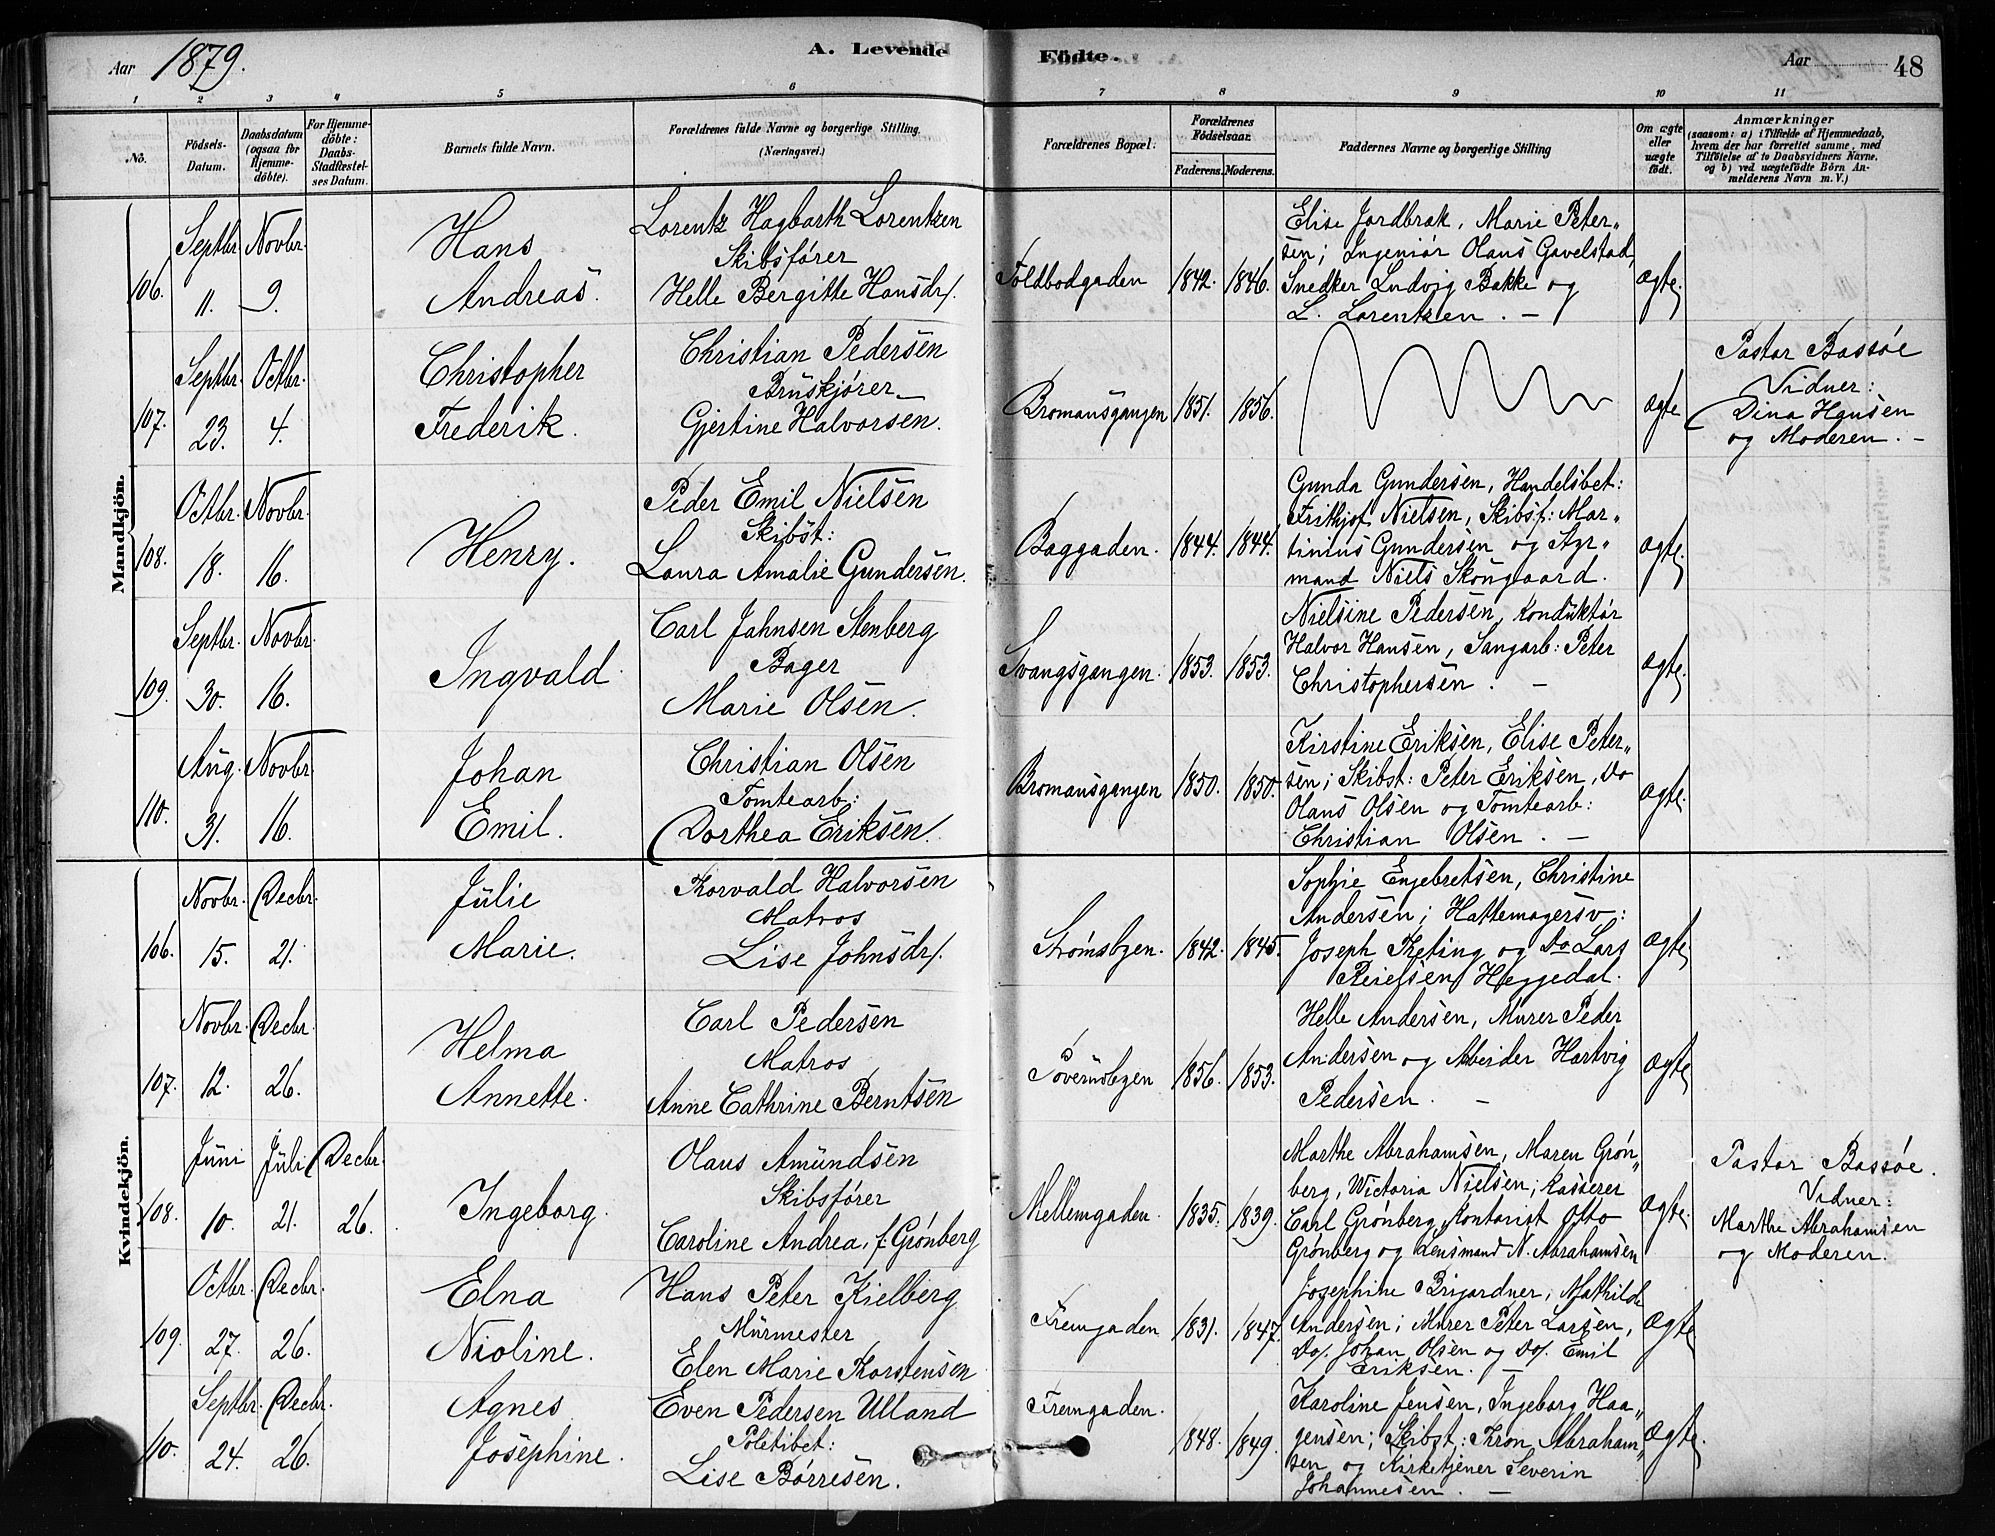 Aar 1879.
A. Levende
Födte.
Aar
48
1 2 3 4 5 6 7 8 9 10 11
No.
Födsels-Datum.
Daabsdatum (ogsaa for Hjemme-döbte).
For Hjemme-döbte: Daabs-Stadfæstel-ses Datum.
Barnets fulde Navn.
Forældrenes fulde Navne og borgerlige Stilling.
(Næringsvei.)
Forældrenes Bopæl.
Forældrenes Födselsaar.
Faderens. Moderens.
Faddernes Navne og borgerlige Stilling
Om ægte eller uægte födt.
Anmærkninger
(saasom: a) i Tilfælde af Hjemmedaab, hvem der har forrettet samme, med Tilföielse af to Daabsvidners Navne, og b) ved uægtefödte Börn Anmelderens Navn m. V.)
Mandkjön.
106.
Septbr. 11.
Novbr. 9.
Hans
Andreas.
Lorentz Hagbarth Lorentzen
Skibsfører
Helle Bergitte Hansdr/.
Toldbodgaden
1842. 1846.
Elise Jordbrak, Marie Peter„
sen; Ingeniør Olaus Gavelstad,
Snedker Ludvig Bakke og
L. Lorentzen. —
ægte.
107.
Septbr. 23.
Octbr. 4.
Christopher
Frederik.
Christian Pedersen
Bruskjører
Gjertine Halvorsen.
Bromansgangen
1851. 1856.
ægte
Pastor Bassøe
Vidner:
Dina Hansen
og Moderen. —
108.
Octbr. 18.
Novbr. 16.
Henry.
Peder Emil Nielsen
Skibst:
Laura Amalie Gundersen.
Baggaden.
1844. 1844.
Gunda Gundersen, Handelsbet:
Frithjof Nielsen, Skibsf: Mar„
tinius Gundersen og Styr„
mand Niels Skougaard.
ægte.
109.
Septbr. 30.
Novbr. 16.
Ingvald.
Carl Jahnsen Stenberg
Bager
Marie Olsen.
Svangsgangen.
1853. 1853.
Nielsine Pedersen, Konduktør
Halvor Hansen, Sangarb: Peter
Christophersen. —
ægte.
110.
Aug. 31.
Novbr. 16.
Johan
Emil.
Christian Olsen
Tomtearb:
Dorthea Eriksen/.
Bromansgangen
1850. 1850.
Kirstine Eriksen, Elise Peter„
sen; Skibst: Peter Eriksen, Do
Olaus Olsen og Tomtearb:
Christian Olsen. —
ægte.
Kvindekjön.
106.
Novbr. 15.
Decbr. 21.
Julie
Marie.
Korvald Halvorsen
Matros
Lise Johnsdr/.
Strømsbgen.
1842. 1845.
Sophie Engebretsen, Christine
Andersen; Hattemagersv:
Joseph Keting og Do Lars
Reiersen Heggedal.
ægte
107.
Novbr. 12.
Decbr. 26.
Helma
Annette.
Carl Pedersen
Matros
Anne Cathrine Berntsen
1856. 1853.
Helle Andersen, Murer Peder
Andersen og Arbeider Hartvig
Pedersen. —
ægte
108.
Juni 10.
Juli 21.
Decbr. 26.
Ingeborg.
Olaus Amundsen
Skibsfører
Caroline Andrea, f. Grønberg
Mellemgaden.
1835. 1839.
Marthe Abrahamsen, Maren Grøn„
berg, Wictoria Nielsen; Kasserer
Carl Grønberg, Kontorist Otto
Grønberg og Lensmand N. Abrahamsen
ægte.
Pastor Bassøe.
Vidner:
Marthe Abrahamsen
og Moderen.
109.
Octbr. 27.
Decbr. 26.
Elna
Nioline.
Hans Peter Kielberg
Murmester
Elen Marie Korstensen
Fremgaden
1831. 1847.
Josephine Brigardner, Mathilde
Andersen; Murer Peter Larsen,
Do/. Johan Olsen og Do/. Emil
Eriksen. —
ægte
110.
Septbr. 24.
Decbr. 26.
Agnes
Josephine.
Even Pedersen Ulland
Politibet:
Lise Børresen.
Fremgaden.
1848. 1849.
Karoline Jensen, Ingeborg Haa„
gensen; Skibst: Thron Abraham„
sen og Kirketjener Severin
Johannesen. —
ægte.